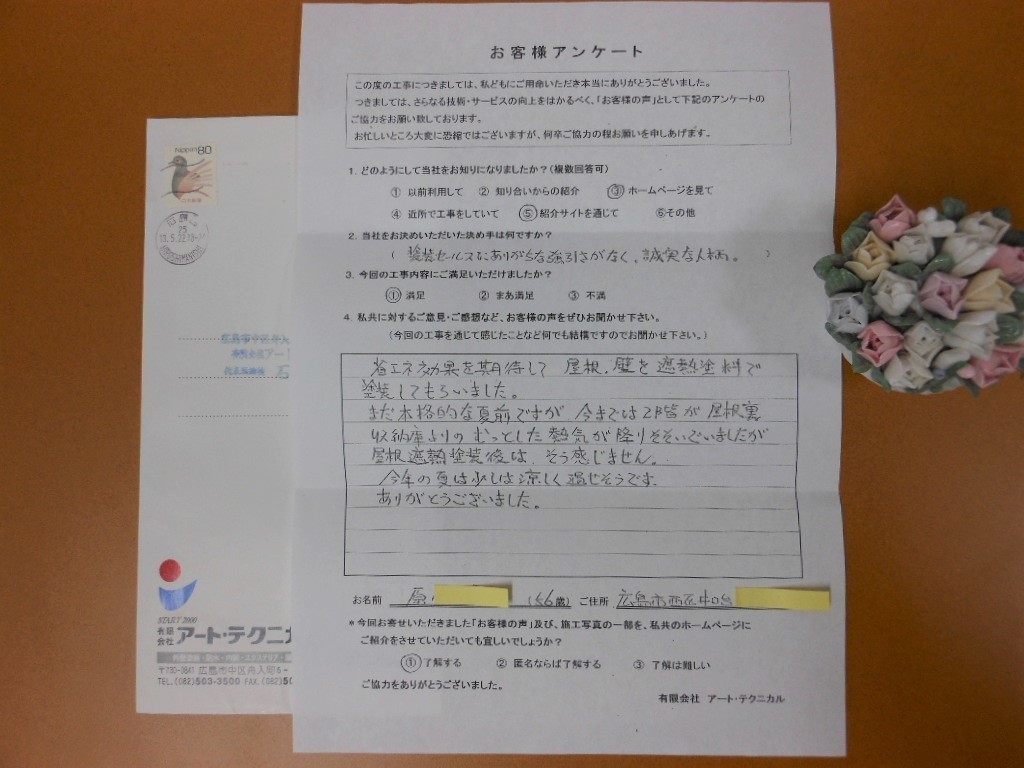 お客様アンケート
この度の工事につきましては、私どもにご用命いただき本当にありがとうございました。
つきましては、さらなる技術・サービスの向上をはかるべく、「お客様の声」として下記のアンケートの
ご協力をお願い致しております。
お忙しいところ大変に恐縮ではございますが、何卒ご協力の程お願いを申しあげます。
1. どのようにして当社をお知りになりましたか？(複数回答可)
① 以前利用して ② 知り合いからの紹介 ③ ホームページを見て
④ 近所で工事をしていて ⑤ 紹介サイトを通じて ⑥その他
2. 当社をお決めいただいた決め手は何ですか？
( 塗装セールスにありがちな強引さがなく、誠実な人柄。 )
3. 今回の工事内容にご満足いただけましたか？
① 満足 ② まあ満足 ③ 不満
4. 私共に対するご意見・ご感想など、お客様の声をぜひお聞かせ下さい。
(今回の工事を通じて感じたことなど何でも結構ですのでお聞かせ下さい。)
省エネ効果を期待して 屋根、壁を遮熱塗料で
塗装してもらいました。
まだ本格的な夏前ですが、今までは2階が屋根裏
収納庫よりのむっとした熱気が降りそそいでいましたが
屋根遮熱塗装後は、そう感じません。
今年の夏は少しは涼しく過じそうです。
ありがとうございました。
お名前 原 (56歳) ご住所 広島市西区
＊今回お寄せいただきました「お客様の声」及び、施工写真の一部を、私共のホームページに
ご紹介をさせていただいても宜しいでしょうか？
① 了解する ② 匿名ならば了解する ③ 了解は難しい
ご協力をありがとうございました。
有限会社 アート・テクニカル
NIPPON 80
広島市中区舟入
START 2000
有限会社 アート・テクニカ
〒730-0841 広島市中区舟入町6-
TEL.(082)503-3500 FAX.(082)50